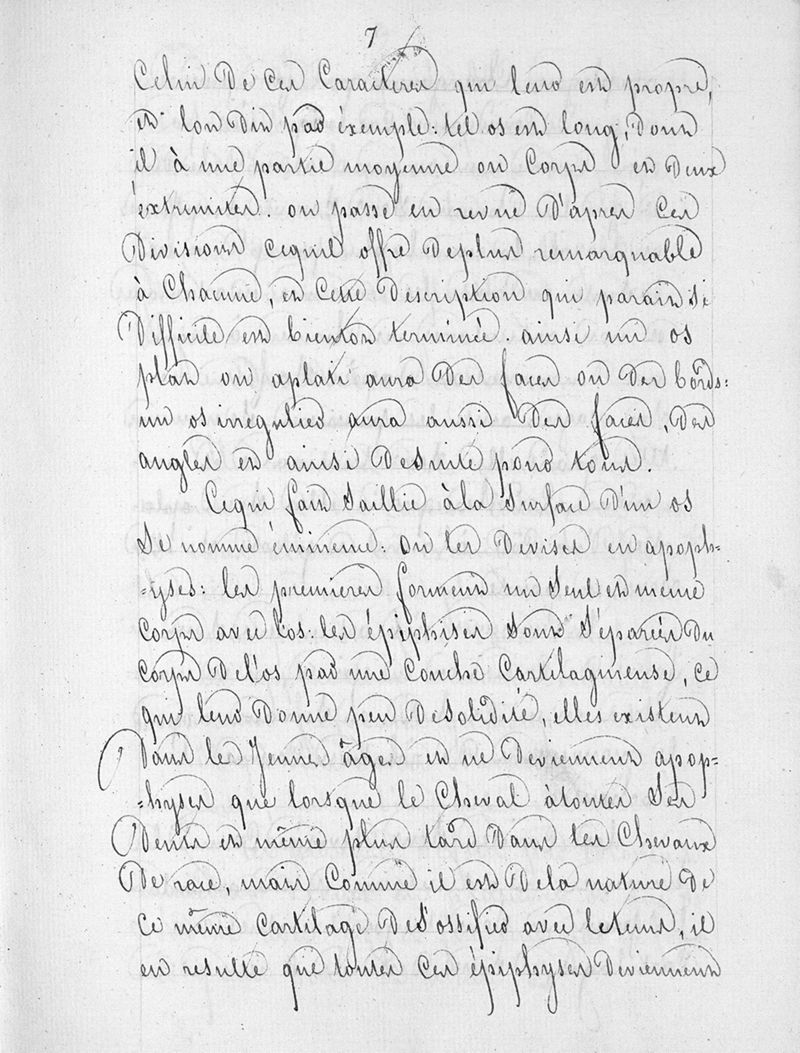 7
Celui De Ces Caracteres qui leur est propre,
et lon Dit par éxemple: tel os est long, Dont
il à une partie moyenne ou Corps et Deux
éxtremites. on passe en revue D'apres Ces
Divisions cequil offre Deplus remarquable
à Chacune, et Cette Description qui parait Si
Difficile est bientot terminée. ainsi un os
plat ou aplati aura Des faces ou Des bords-
un os irregulier aura aussi Des faces, Des
angles et ainsi Desuite pour tous.
Cequi fait Saillie àla Surface D'un os
Se nomme éminence: on les Devises en apoph=
=yses: les premieres forment un Seul et même
Corps avec los: les épiphises Sont Séparées Du
Corps De l'os par une Couche Cartilagineuse, ce
qui leur Donne peu DeSolidité, elles existent
Dans le Jeune âges et ne Deviennent apop=
=hyses que lorsque le Cheval àtoutes Ses
Dents et même plus tard Dans les Chevaux
De race, mais Comme il est De la nature De
Ce même Cartilage DeS'ossifier avec letems, il
en resulte que toutes Ces épiphyses Deviennent